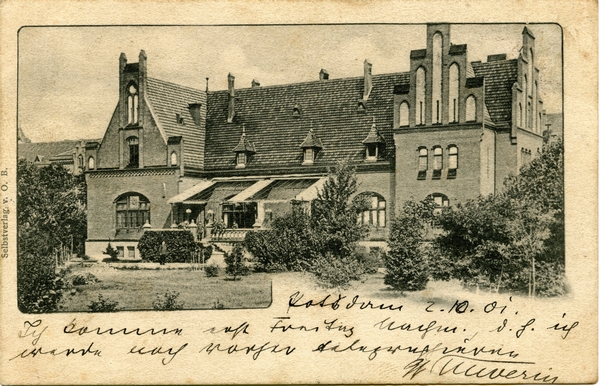 Selbstverlag v. O. B.
Potsdam 2.10.01.
Ich komme erst Freitag Nachm., d. h. ich
werde noch vorher telegraphieren